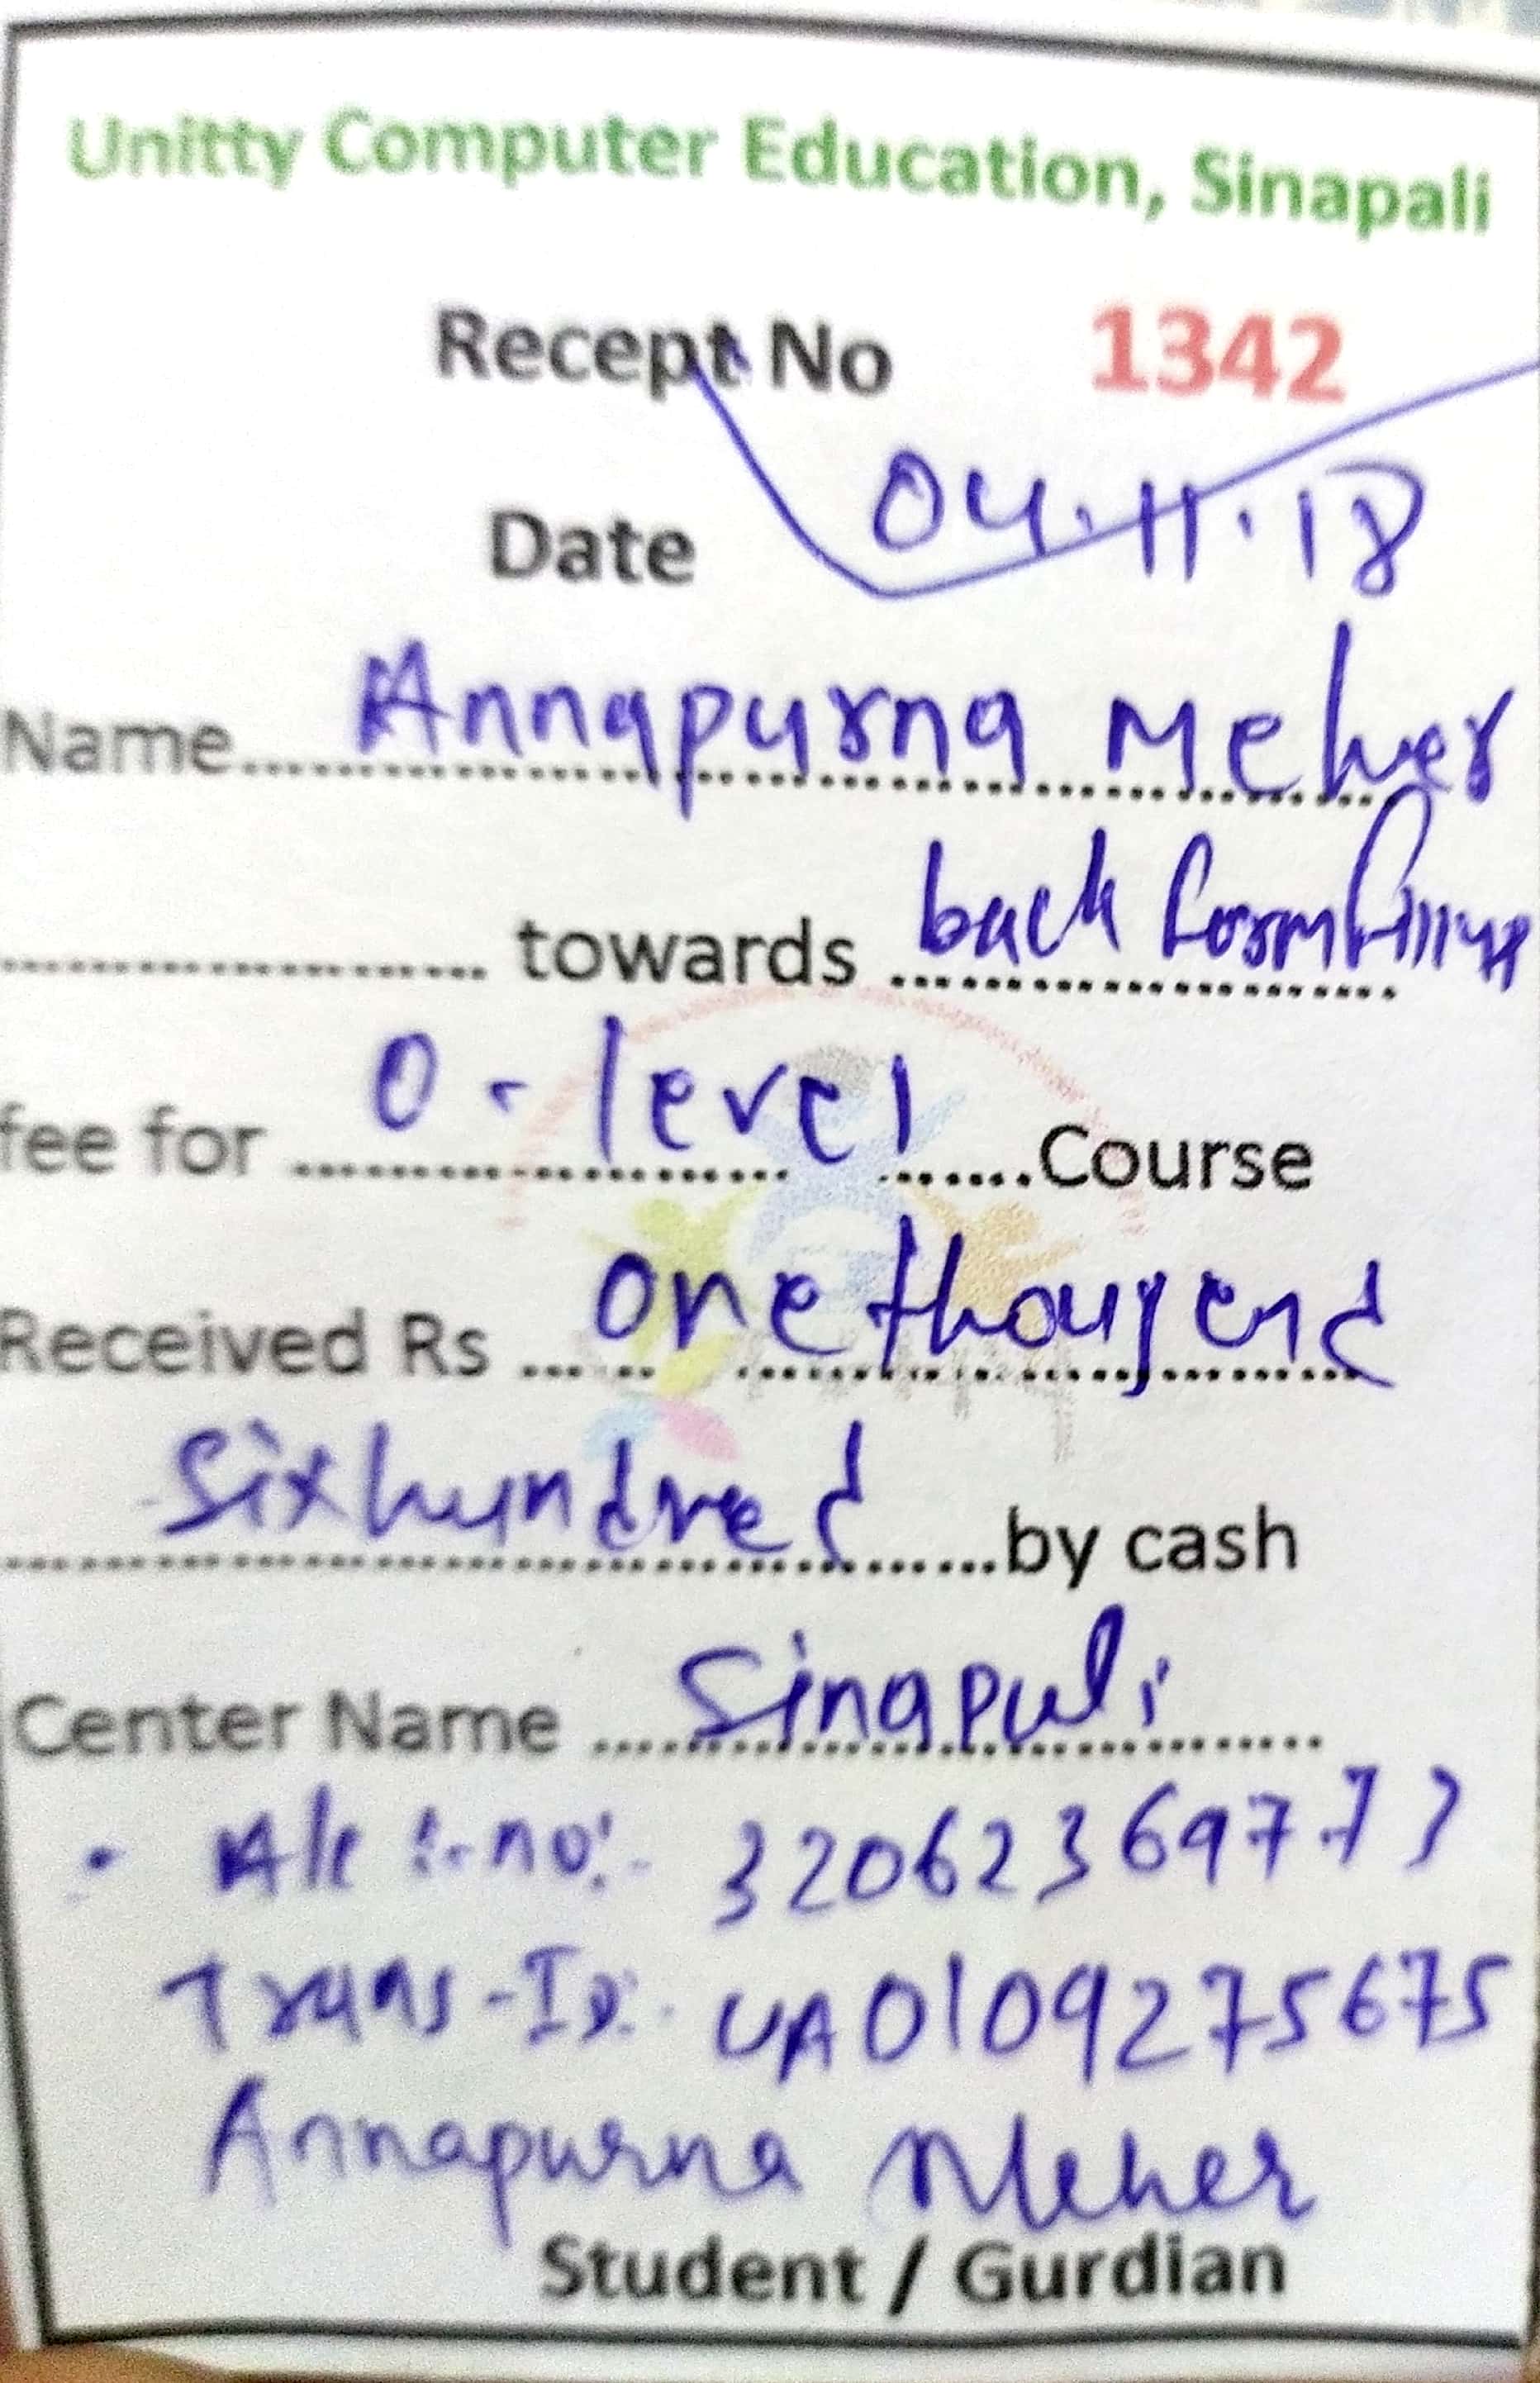 Unitty Computer Education, Sinapali
Recept No 1342
Date 04.11.18
Name Annapurna Meher
towards back formfilling
fee for O-level Course
Received Rs one thousend
Sixhundred by cash
Center Name Sinapali
A/c :-no:- 32062369773
Trans-ID:- UA0109275675
Annapurna Meher
Student / Gurdian